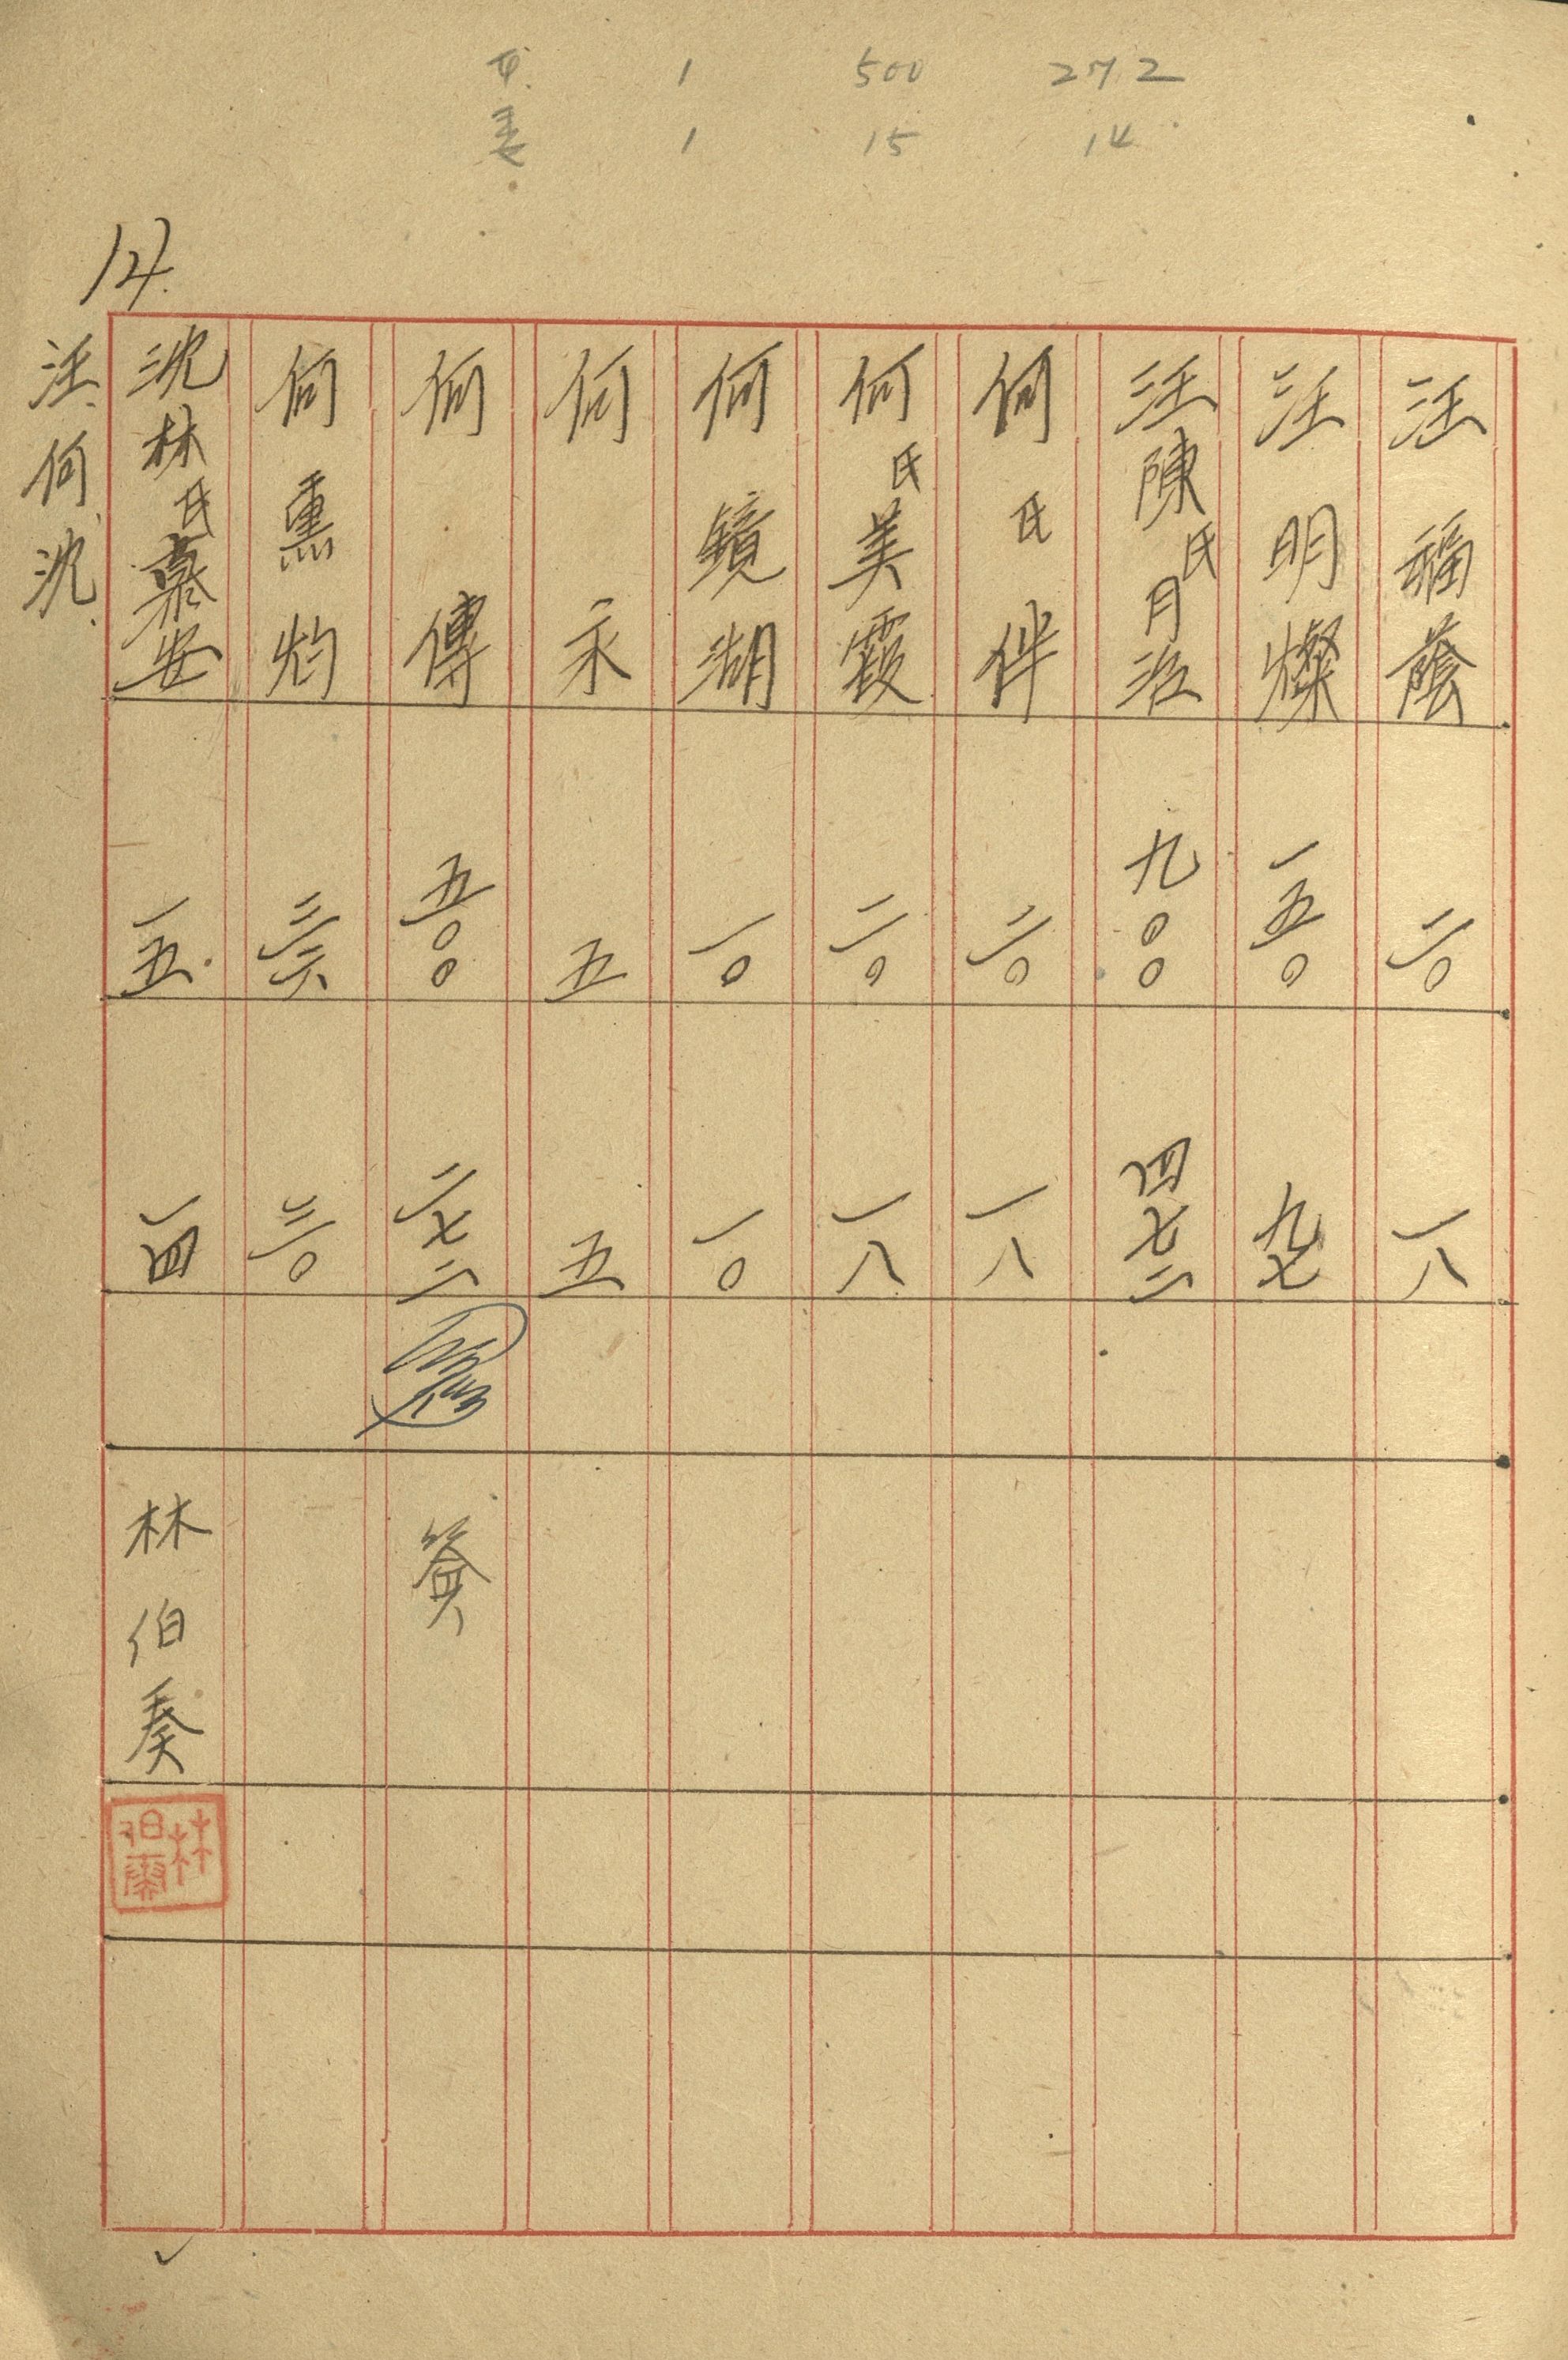 1 500 272
1 15 14
14.
汪福蔭 二〇 一八
汪明燦 一五〇 九七
汪陳氏月治 九〇〇 四七二
何氏伴 二〇 一八
何氏美霞 二〇 一八
何鏡湖 一〇 一〇
何永 五 五
何傳 五〇〇 二七二
何熏灼 三六 三〇
沈林氏慕安 一五 一四 林伯奏
林伯奏
汪、何、沈、